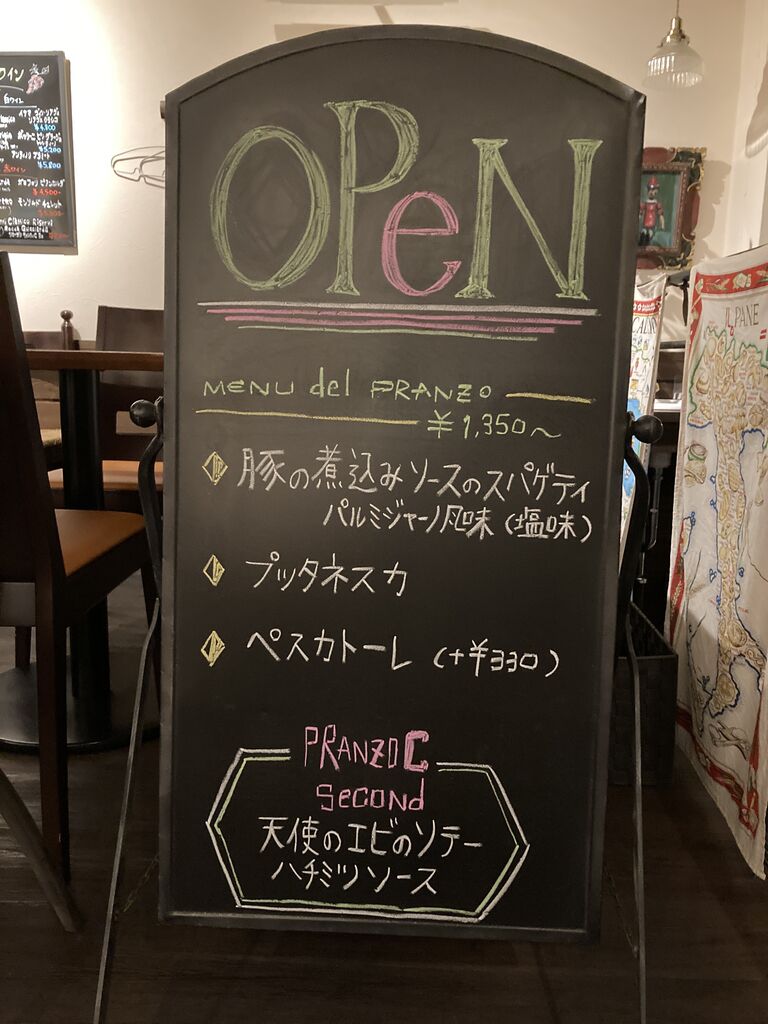 OPeN
MENU del PRANZO
¥1,350〜
豚の煮込みソースのスパゲティ
パルミジャーノ風味(塩味)
プッタネスカ
ペスカトーレ (+¥330)
PRANZO C
second
天使のエビのソテー
ハチミツソース
イン
白ワイン
¥4,800
¥5,200
¥5,800
赤ワイン
IL PANE